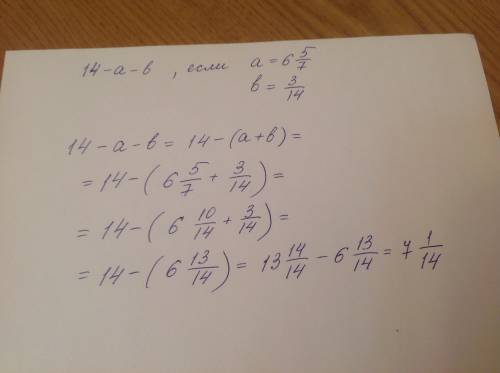 14-а-в , если а=6 5/7
в= 3/14
14-а-в= 14-(а+в)=
=14-(6 5/7 + 3/14)=
=14-(6 10/14 + 3/14)=
=14-(6 13/14)= 13 14/14 - 6 13/14 = 7 1/14